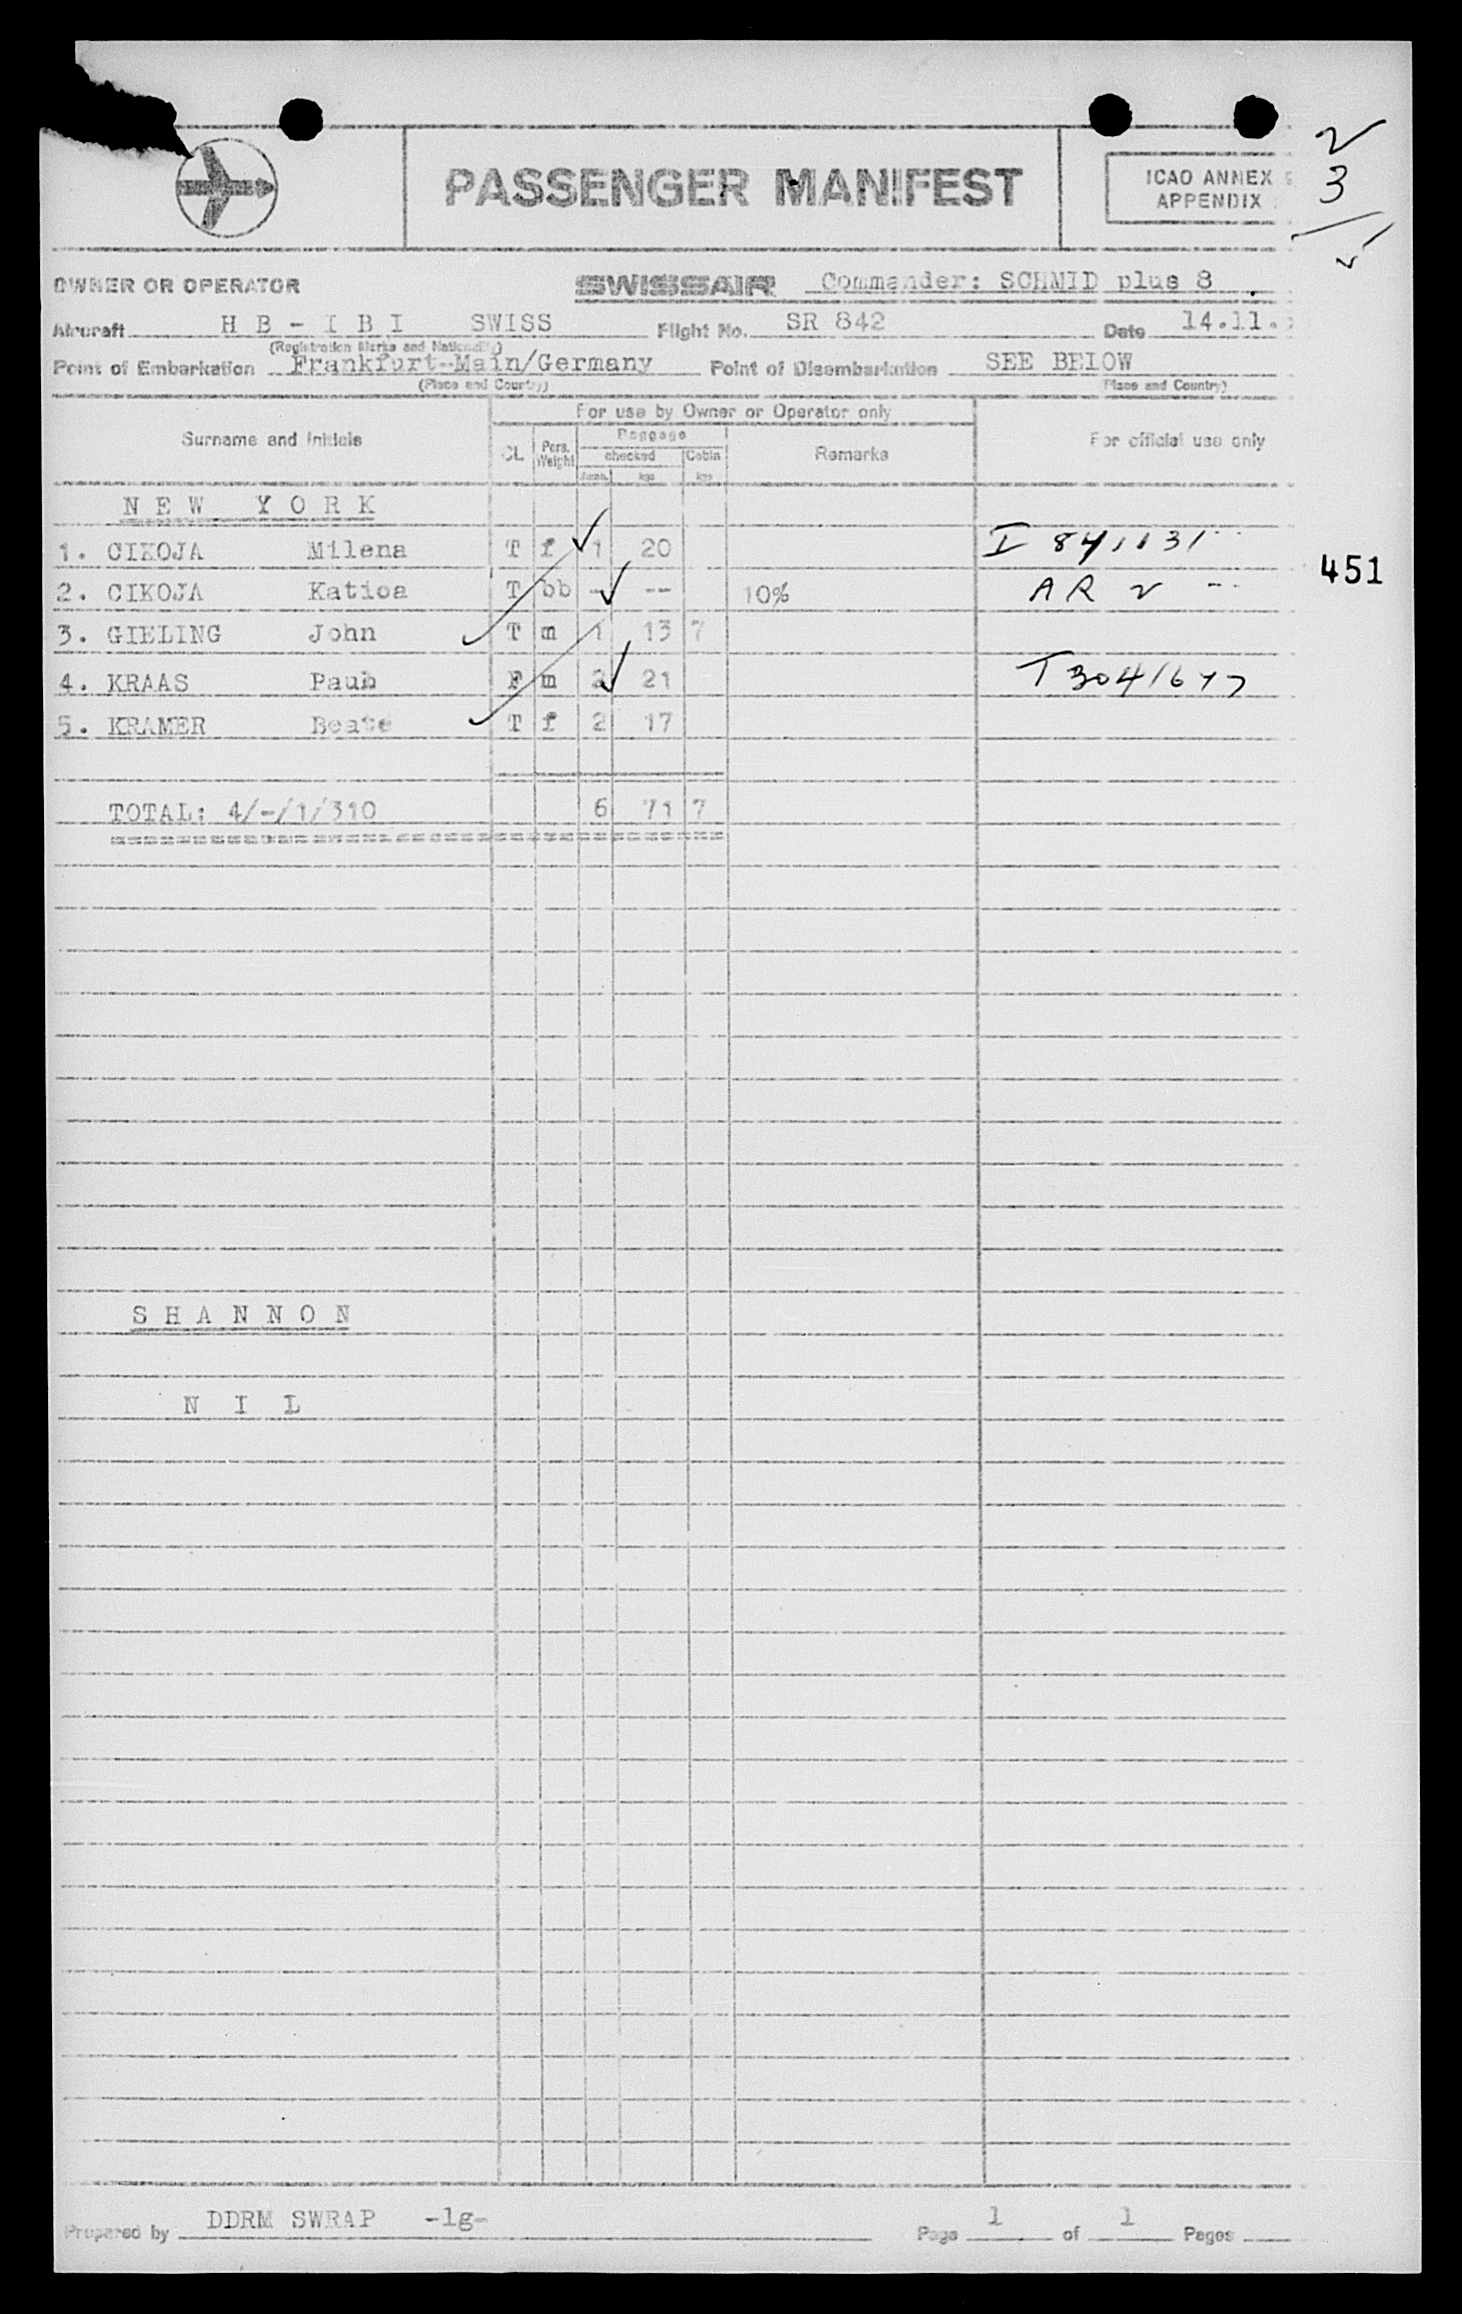 2
PASSENGER MANIFEST
ICAO ANNEX
APPENDIX
3
OWNER OR OPERATOR SWISSAIR Commander: SCHMID plus 8
Aircraft H B - I B I SWISS Flight No. SR 842 Date 14.11.
(Registration Marks and Nationality)
Point of Embarkation Frankfurt-Main/Germany Point of Disembarkation SEE BELOW
(Place and Country) (Place and Country)
For use by Owner or Operator only
Surname and Initials CL Pers. Weight Baggage checked kgs Cabin kgs Remarks For official use only
N E W Y O R K
1. CIKOJA Milena T f 1 20
2. CIKOJA Katica T bb - -- 10% AR 2 --
451
3. GIELING John T m 1 13 7
4. KRAAS Paub F m 2 21
5. KRAMER Beate T f 2 17
TOTAL: 4/-/1/310 6 71 7
S H A N N O N
N I L
Prepared by DDRM SWRAP -lg- Page 1 of 1 Pages